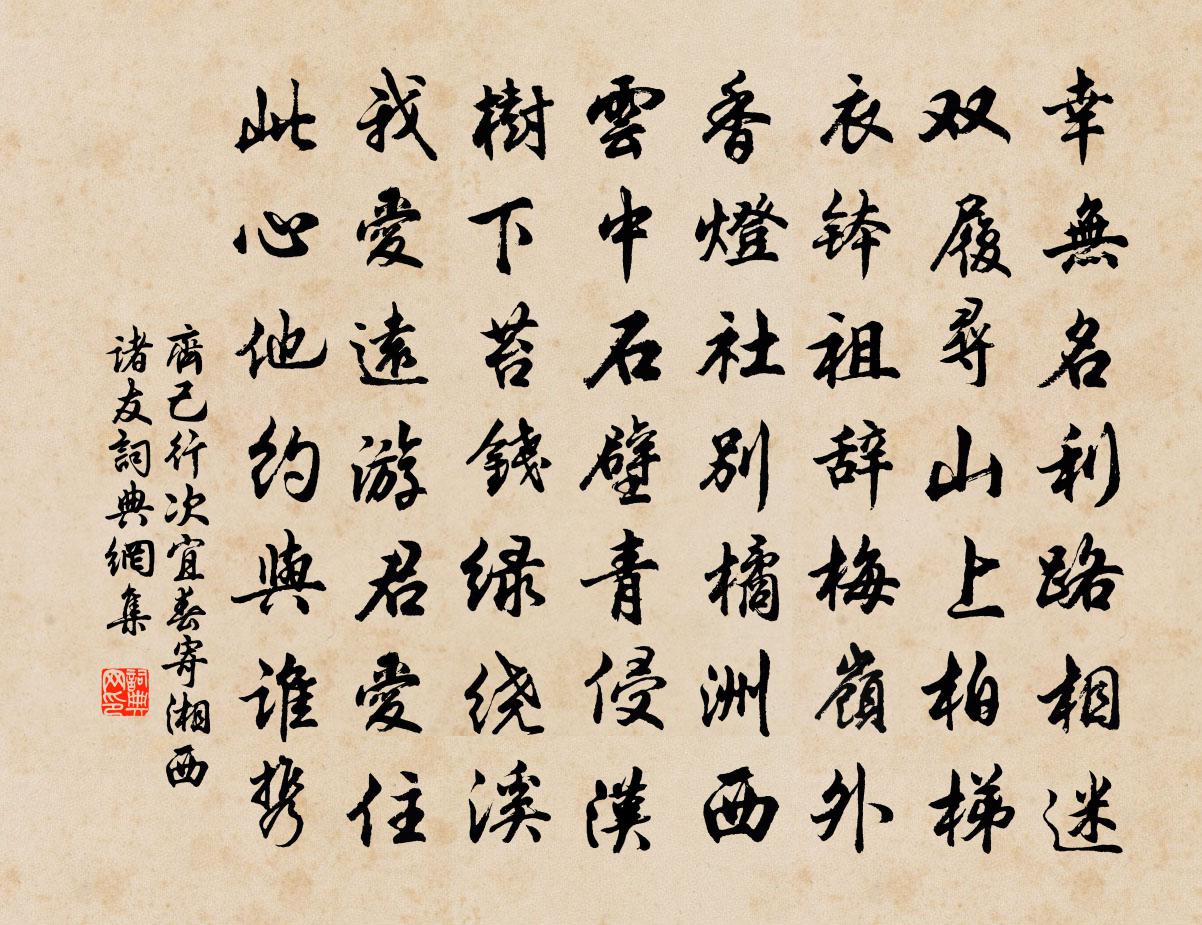 幸無名利路相迷
双履尋山上柏梯
衣钵祖辞梅嶺外
香燈社别橘洲西
雲中石壁青侵漢
樹下苔錢緑绕溪
我愛遠游君愛住
此心他約與誰携
齊己行次宜春寄湘西
諸友詞典網集
詞典
网印